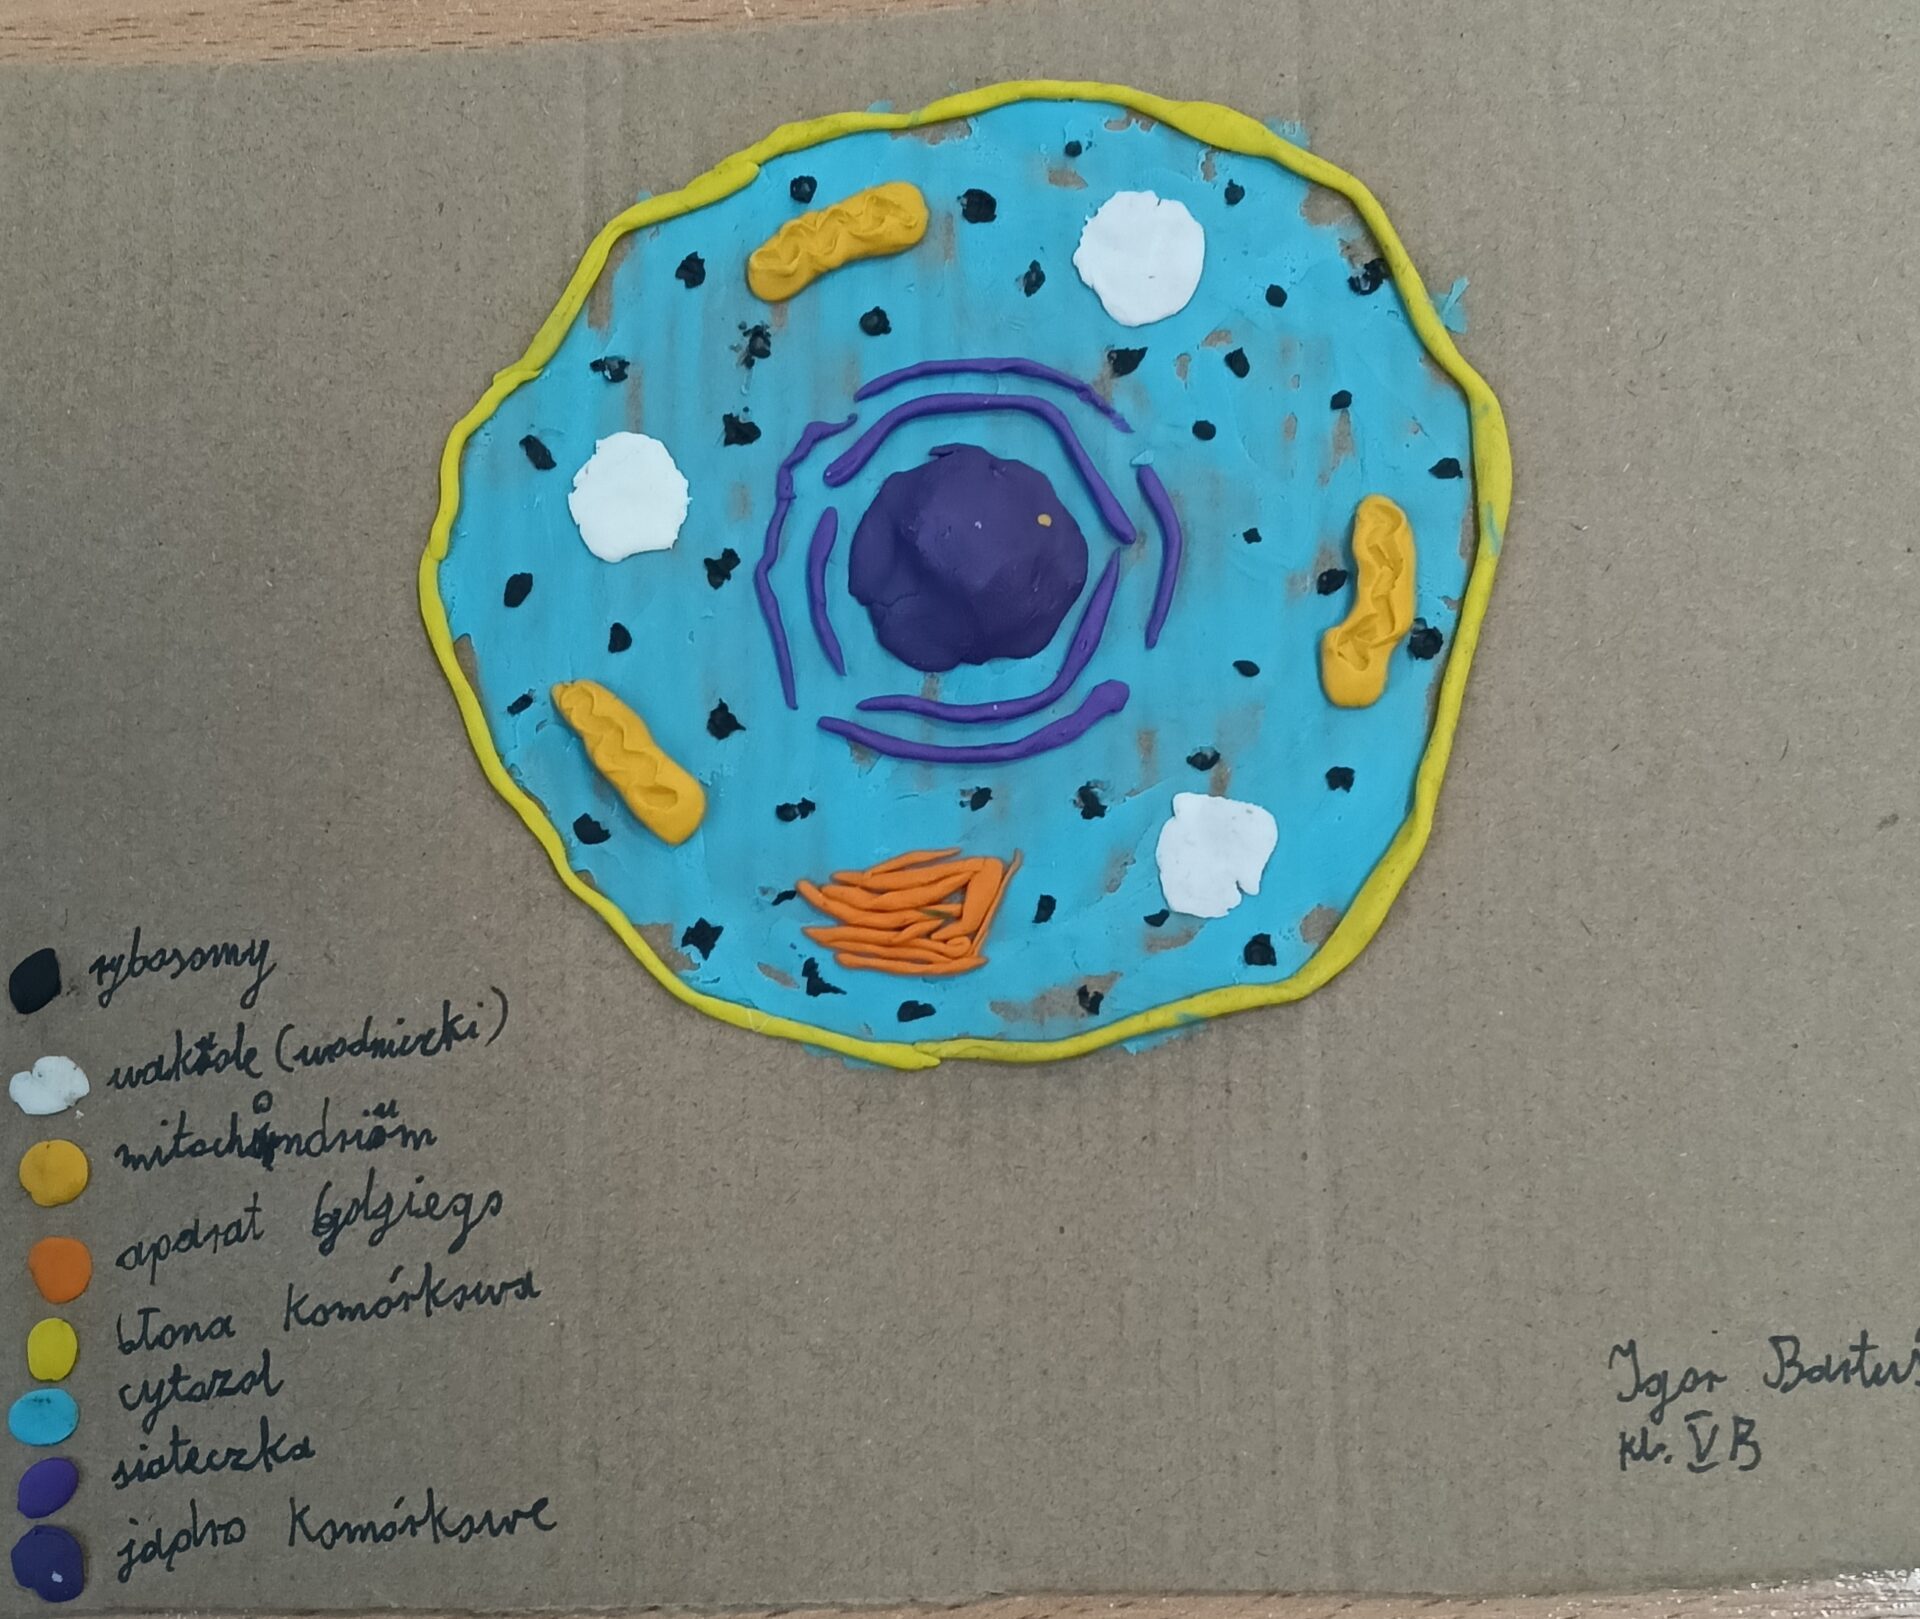 rybosomy
wakuole (wodniczki)
mitochondrium
aparat Golgiego
błona komórkowa
cytozol
siateczka
jądro komórkowe
Igor Bartuś
kl. V B